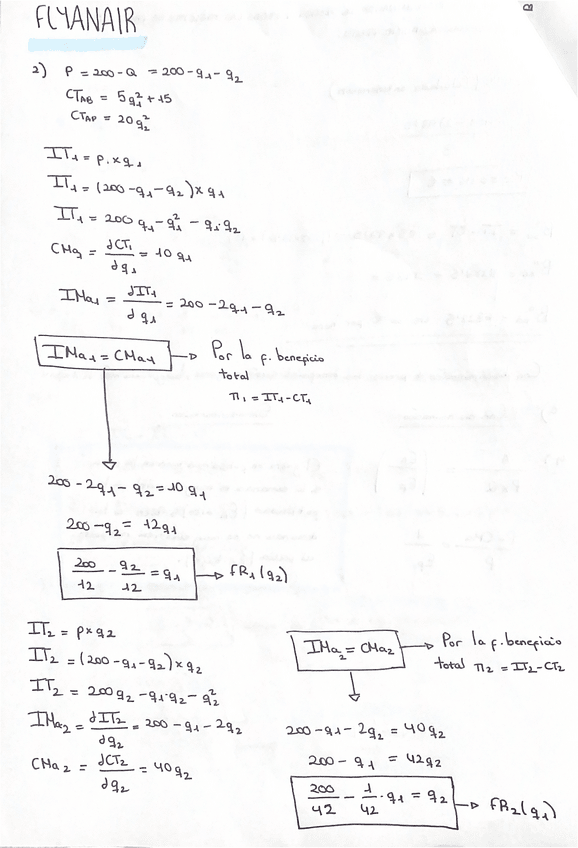 FLYANAIR
2) P = 200 - Q = 200 - q1 - q2
CTAB = 5q1² + 15
CTAP = 20q2²
IT1 = P. x q1
IT1 = (200 - q1 - q2) x q1
IT1 = 200 q1 - q1² - q1·q2
CMa1 = dCT1/dq1 = 10 q1
IMa1 = dIT1/dq1 = 200 - 2q1 - q2
IMa1 = CMa1 → Por la f. beneficio
total
π1 = IT1 - CT1
200 - 2q1 - q2 = 10 q1
200 - q2 = 12q1
200/12 - q2/12 = q1 → FR1(q2)
IT2 = P x q2
IT2 = (200 - q1 - q2) x q2
IT2 = 200q2 - q1·q2 - q2²
IMa2 = dIT2/dq2 = 200 - q1 - 2q2
CMa2 = dCT2/dq2 = 40q2
IMa2 = CMa2 → Por la f. beneficio
total π2 = IT2 - CT2
200 - q1 - 2q2 = 40q2
200 - q1 = 42q2
200/42 - 1/42 · q1 = q2 → FR2(q1)